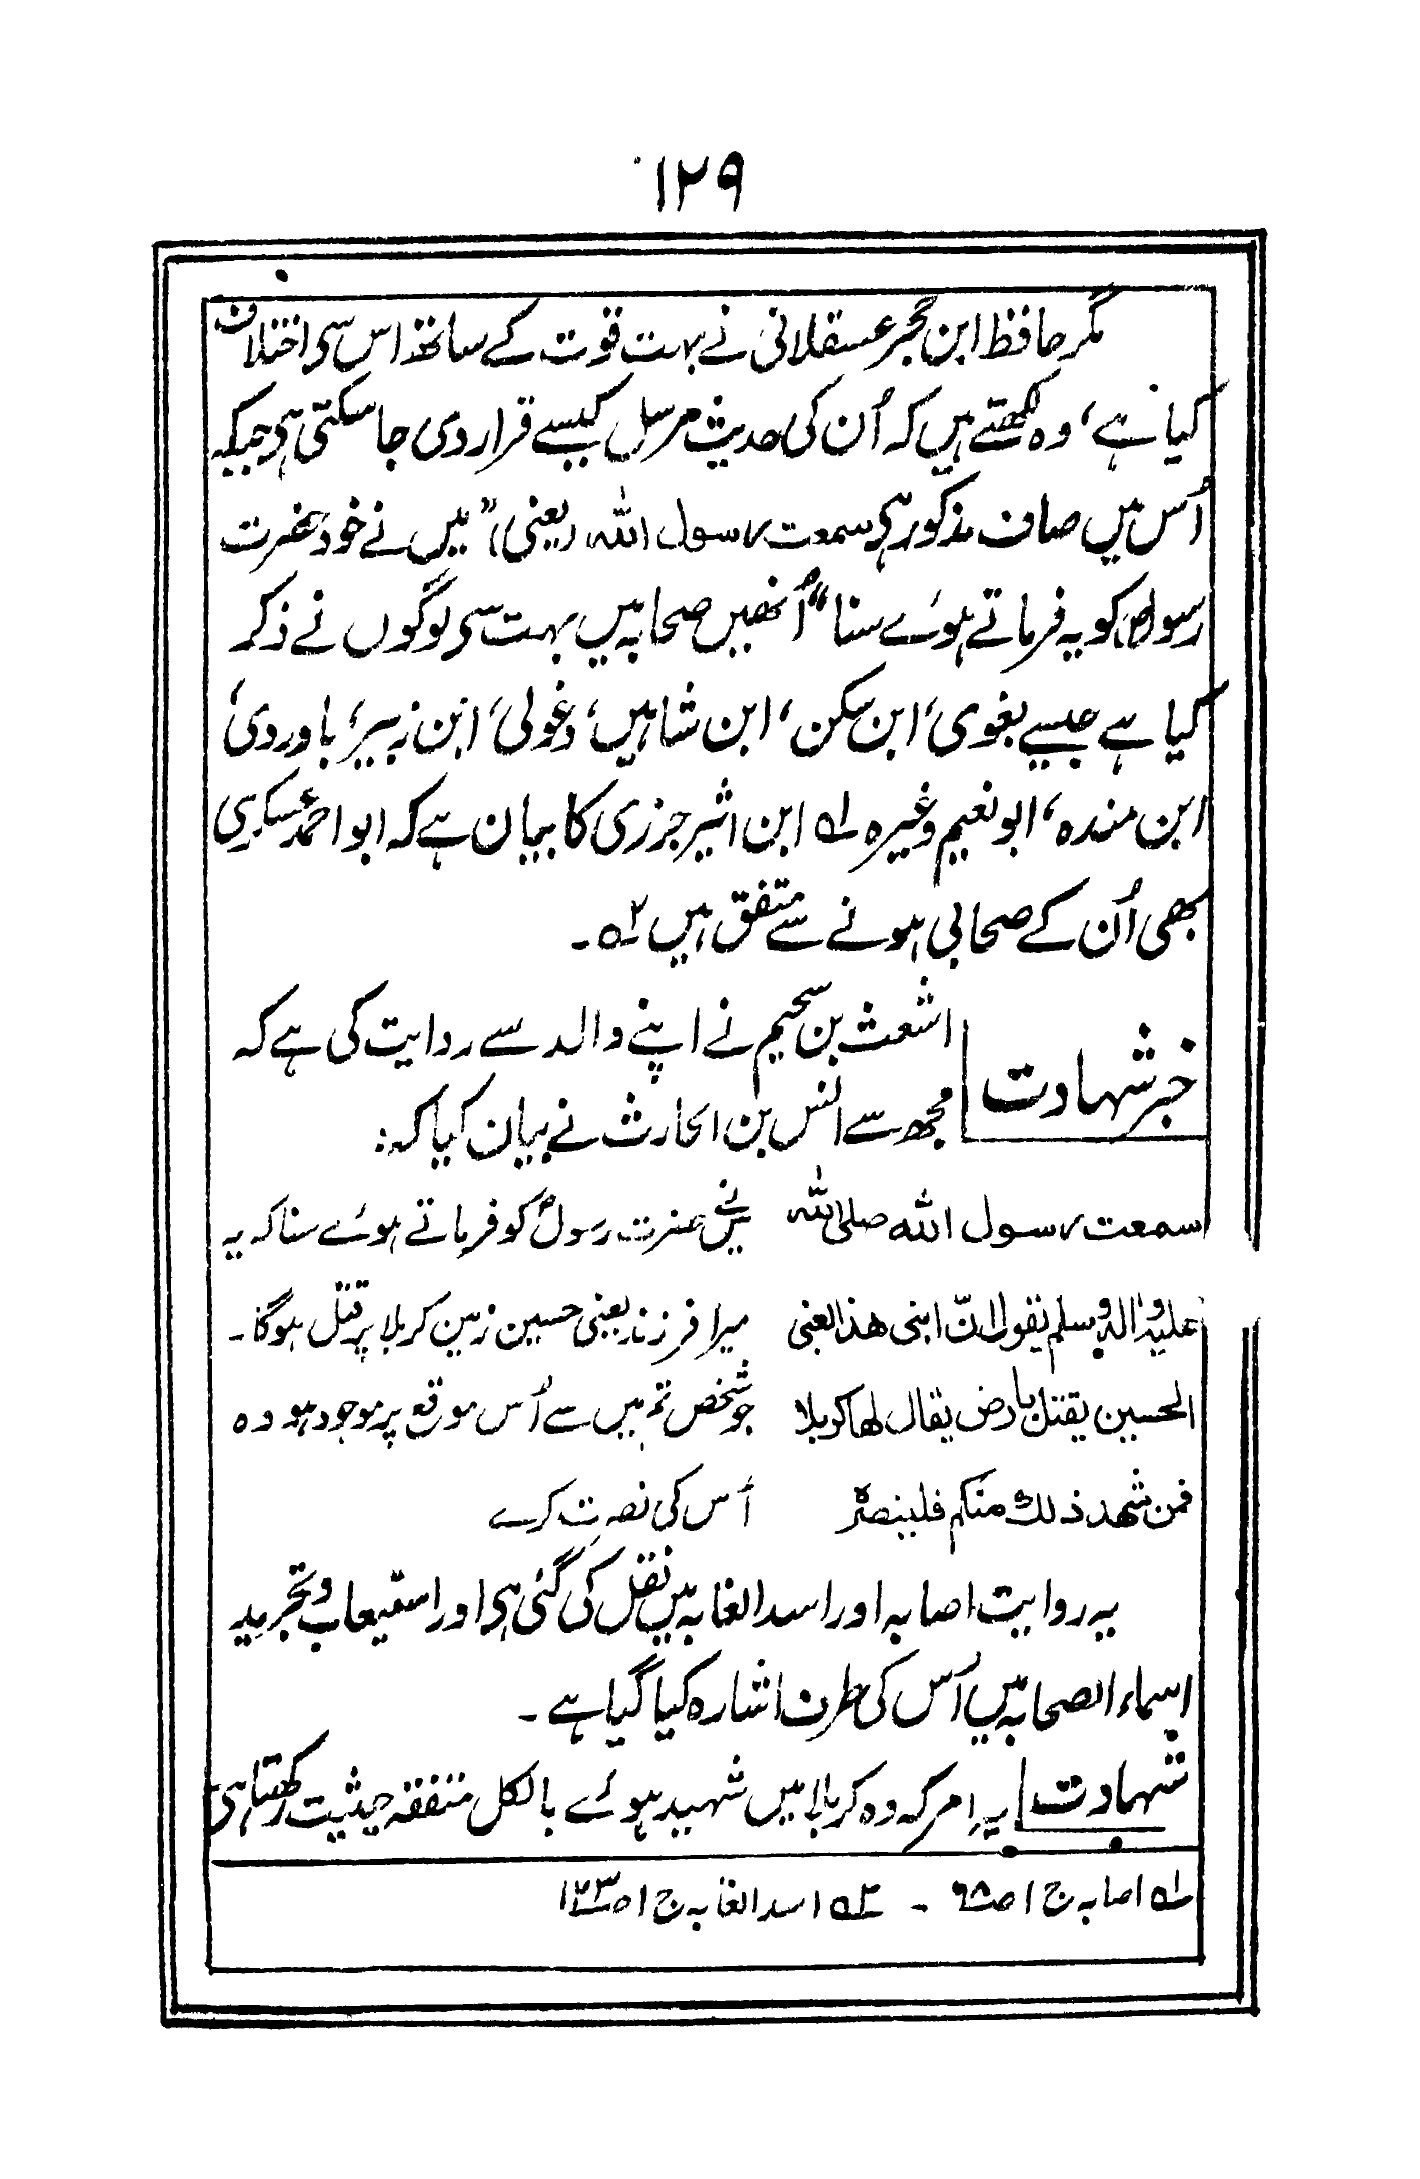 ۱۲۹
مگر حافظ ابن حجر عسقلانی نے بہت قوت کے ساتھ اس سی اختلاف
کیا ہے، وہ لکھتے ہیں کہ اُن کی حدیث مرسل کیسے قرار دی جا سکتی ہی جبکہ
اُس میں صاف مذکور ہی سمعت رسول اللہ (یعنی) ”میں نے خود حضرت
رسولؐ کو یہ فرماتے ہوئے سنا“ اُنھیں صحابہ میں بہت سی لوگوں نے ذکر
کیا ہے جیسے بغوی، ابن سکن، ابن شاہین، دغولی، ابن زبیر، باوردی،
ابن مندہ، ابو نعیم وغیرہ ۱؎ ابن اثیر جزری کا بیان ہے کہ ابو احمد عسکری
بھی اُن کے صحابی ہونے سے متفق ہیں ۲؎۔
خبر شہادت
اشعث بن سحیم نے اپنے والد سے روایت کی ہے کہ
مجھ سے انس بن الحارث نے بیان کیا کہ:
سمعت رسول اللہ صلی اللہ میں نے حضرت رسولؐ کو فرماتے ہوئے سنا کہ یہ
علیہ و الہ و سلم یقول انّ ابنی ھذا یعنی میرا فرزند یعنی حسین زمین کربلا پر قتل ہوگا۔
الحسین یقتل بارض یقال لھا کربلا جو شخص تم میں سے اُس موقع پر موجود ہو وہ
فمن شھد ذلک منکم فلینصرہ اُس کی نصرت کرے
یہ روایت اصابہ اور اسد الغابہ میں نقل کی گئی ہی اور استیعاب و تجرید
اسماء الصحابہ میں اُس کی طرف اشارہ کیا گیا ہے۔
شہادت یہ امر کہ وہ کربلا میں شہید ہوئے بالکل متفقہ حیثیت رکھتا ہی
۱؎ اصابہ ج ۱ ص۶۸ ۔ ۲؎ اسد الغابہ ج ۱ ص۱۲۳